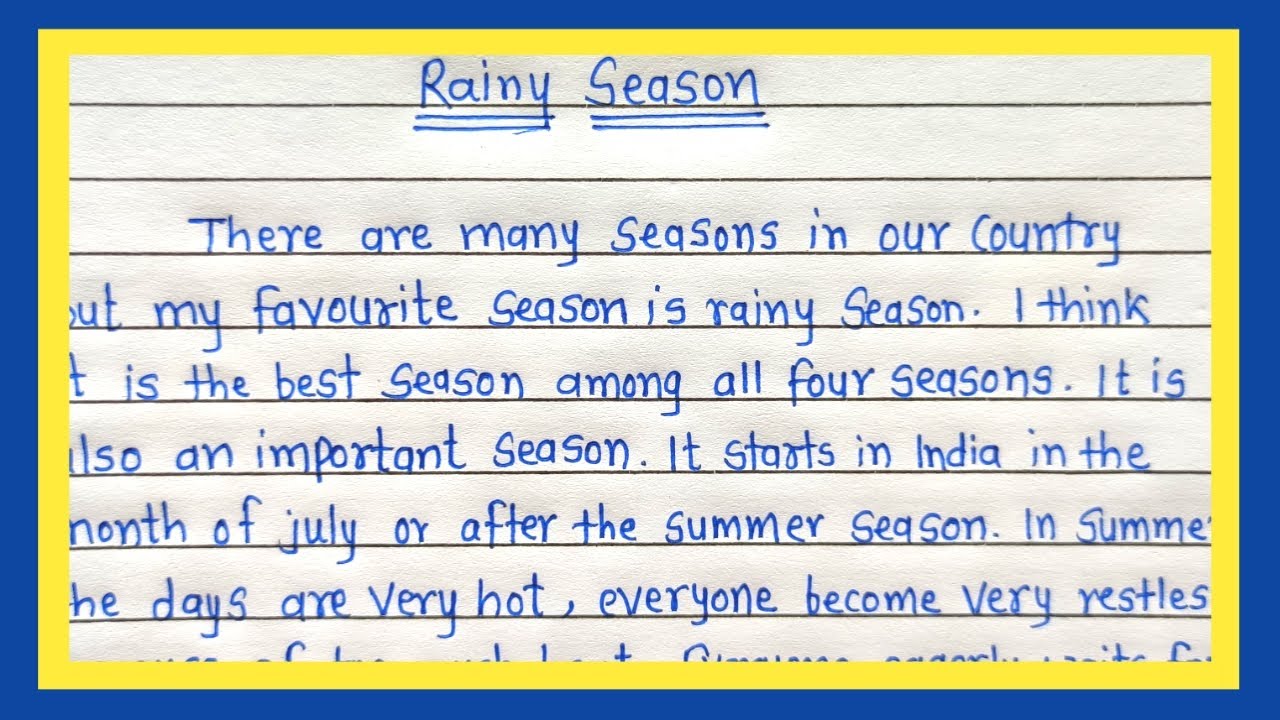 Rainy Season
There are many seasons in our Country
but my favourite season is rainy season. I think
t is the best season among all four seasons. It is
also an important season. It starts in India in the
month of july or after the summer season. In Summer
he days are very hot, everyone become very restles